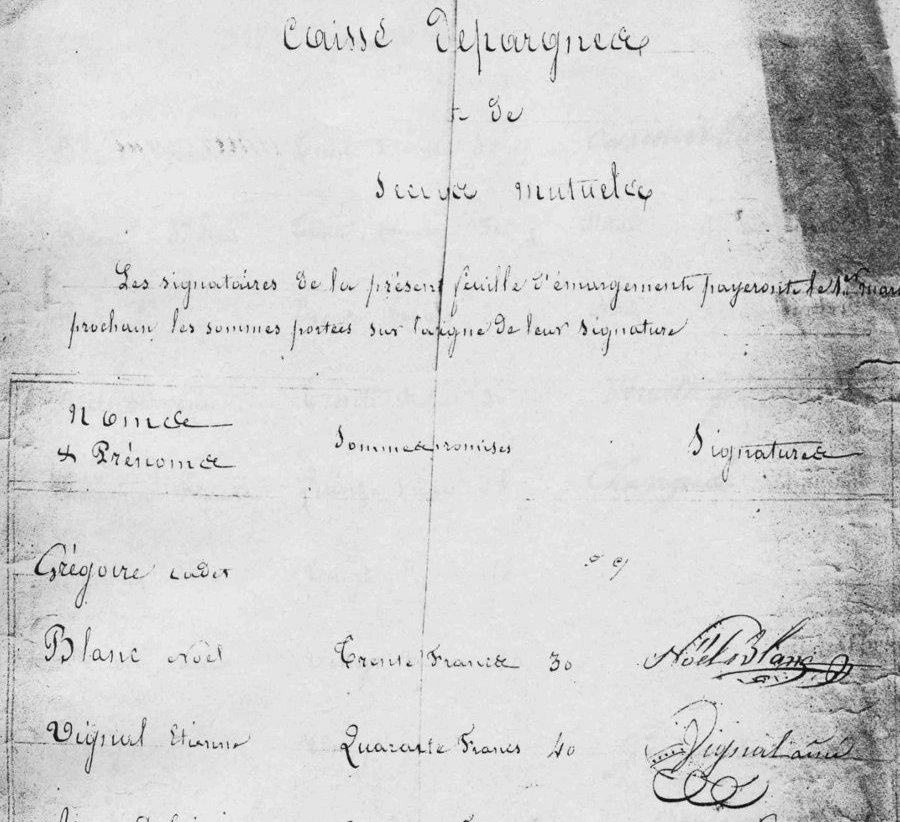 Caisse Depargnes
& de
Secours mutuels
Les signataires de la présent feuille d'émargement payeront le 1er mars
prochain les sommes portées sur la ligne de leur signature
Noms
& Prénoms
Sommes promises
Signatures
Grégoire cadet
Blanc Noël
Trente Francs 30
Noël Blanc
Vignal Etienne
Quarante Francs 40
Vignal ainé